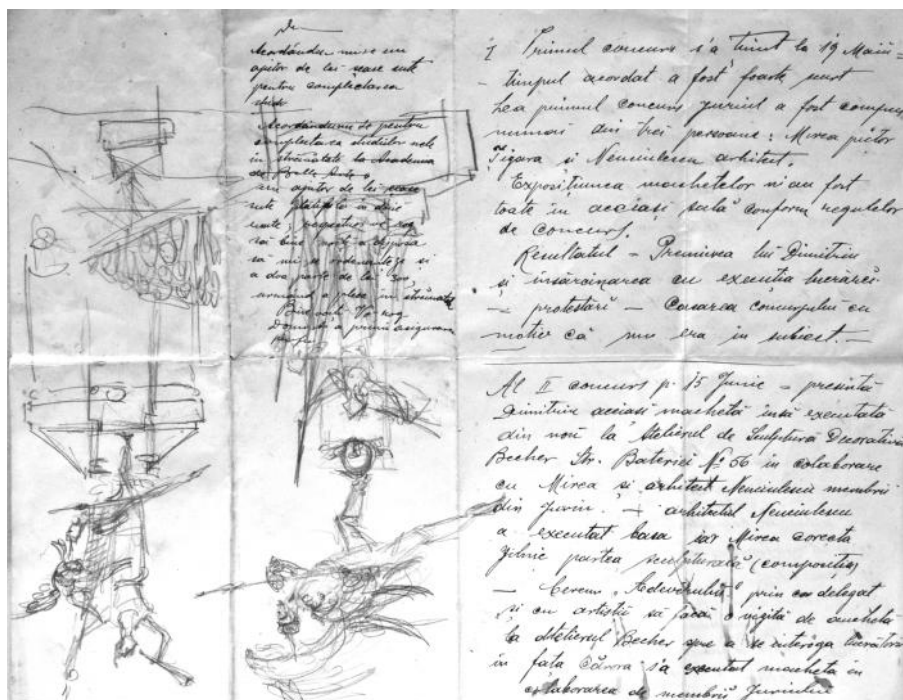 Acordându-mi-se un
ajutor de lei șase sute
pentru complectarea
studi
Acordându-mi-se pentru
complectarea studiilor mele
în străinătate la Academia
de Belle Arte
un ajutor de lei șase
sute plătibil în două
rate, respectuos vă rog
să bine voiți a dispune
să mi se ordonanțeze și
a doua parte de lei 300
urmând a pleca în străinătate
Bine voiți Vă rog
Domnule a primi asigurarea
I Primul concurs s'a ținut la 19 Maiu =
— timpul acordat a fost foarte scurt
La primul concurs juriul a fost compus
numai din trei persoane: Mirea pictor
Țigara și Nenciulescu arhitect.
Expozițiunea machetelor n'au fost
toate în aceiași sală conform regulelor
de concurs.
Rezultatul — Premierea lui Dimitriu
și însărcinarea cu execuția lucrărei
— protestări — Casarea concursului cu
motiv că nu era în subiect. —
Al II concurs p. 15 Junie — prezintă
Dimitriu aceiași machetă însă executată
din nou la Atelierul de Sculptură Decorativă
Becher Str. Bateriei No 56 în colaborare
cu Mirea și arhitect Nenciulescu membrii
din juriu. — arhitectul Nenciulescu
a executat baza iar Mirea corecta
zilnic partea sculpturală (compoziția)
— Cerem „Adevărului" prin un delegat
și cu artiștii să facă o vizită de anchetă
la atelierul Becher spre a se interoga lucrătorii
în fața cărora s'a executat macheta în
colaborarea de membrii Juriului